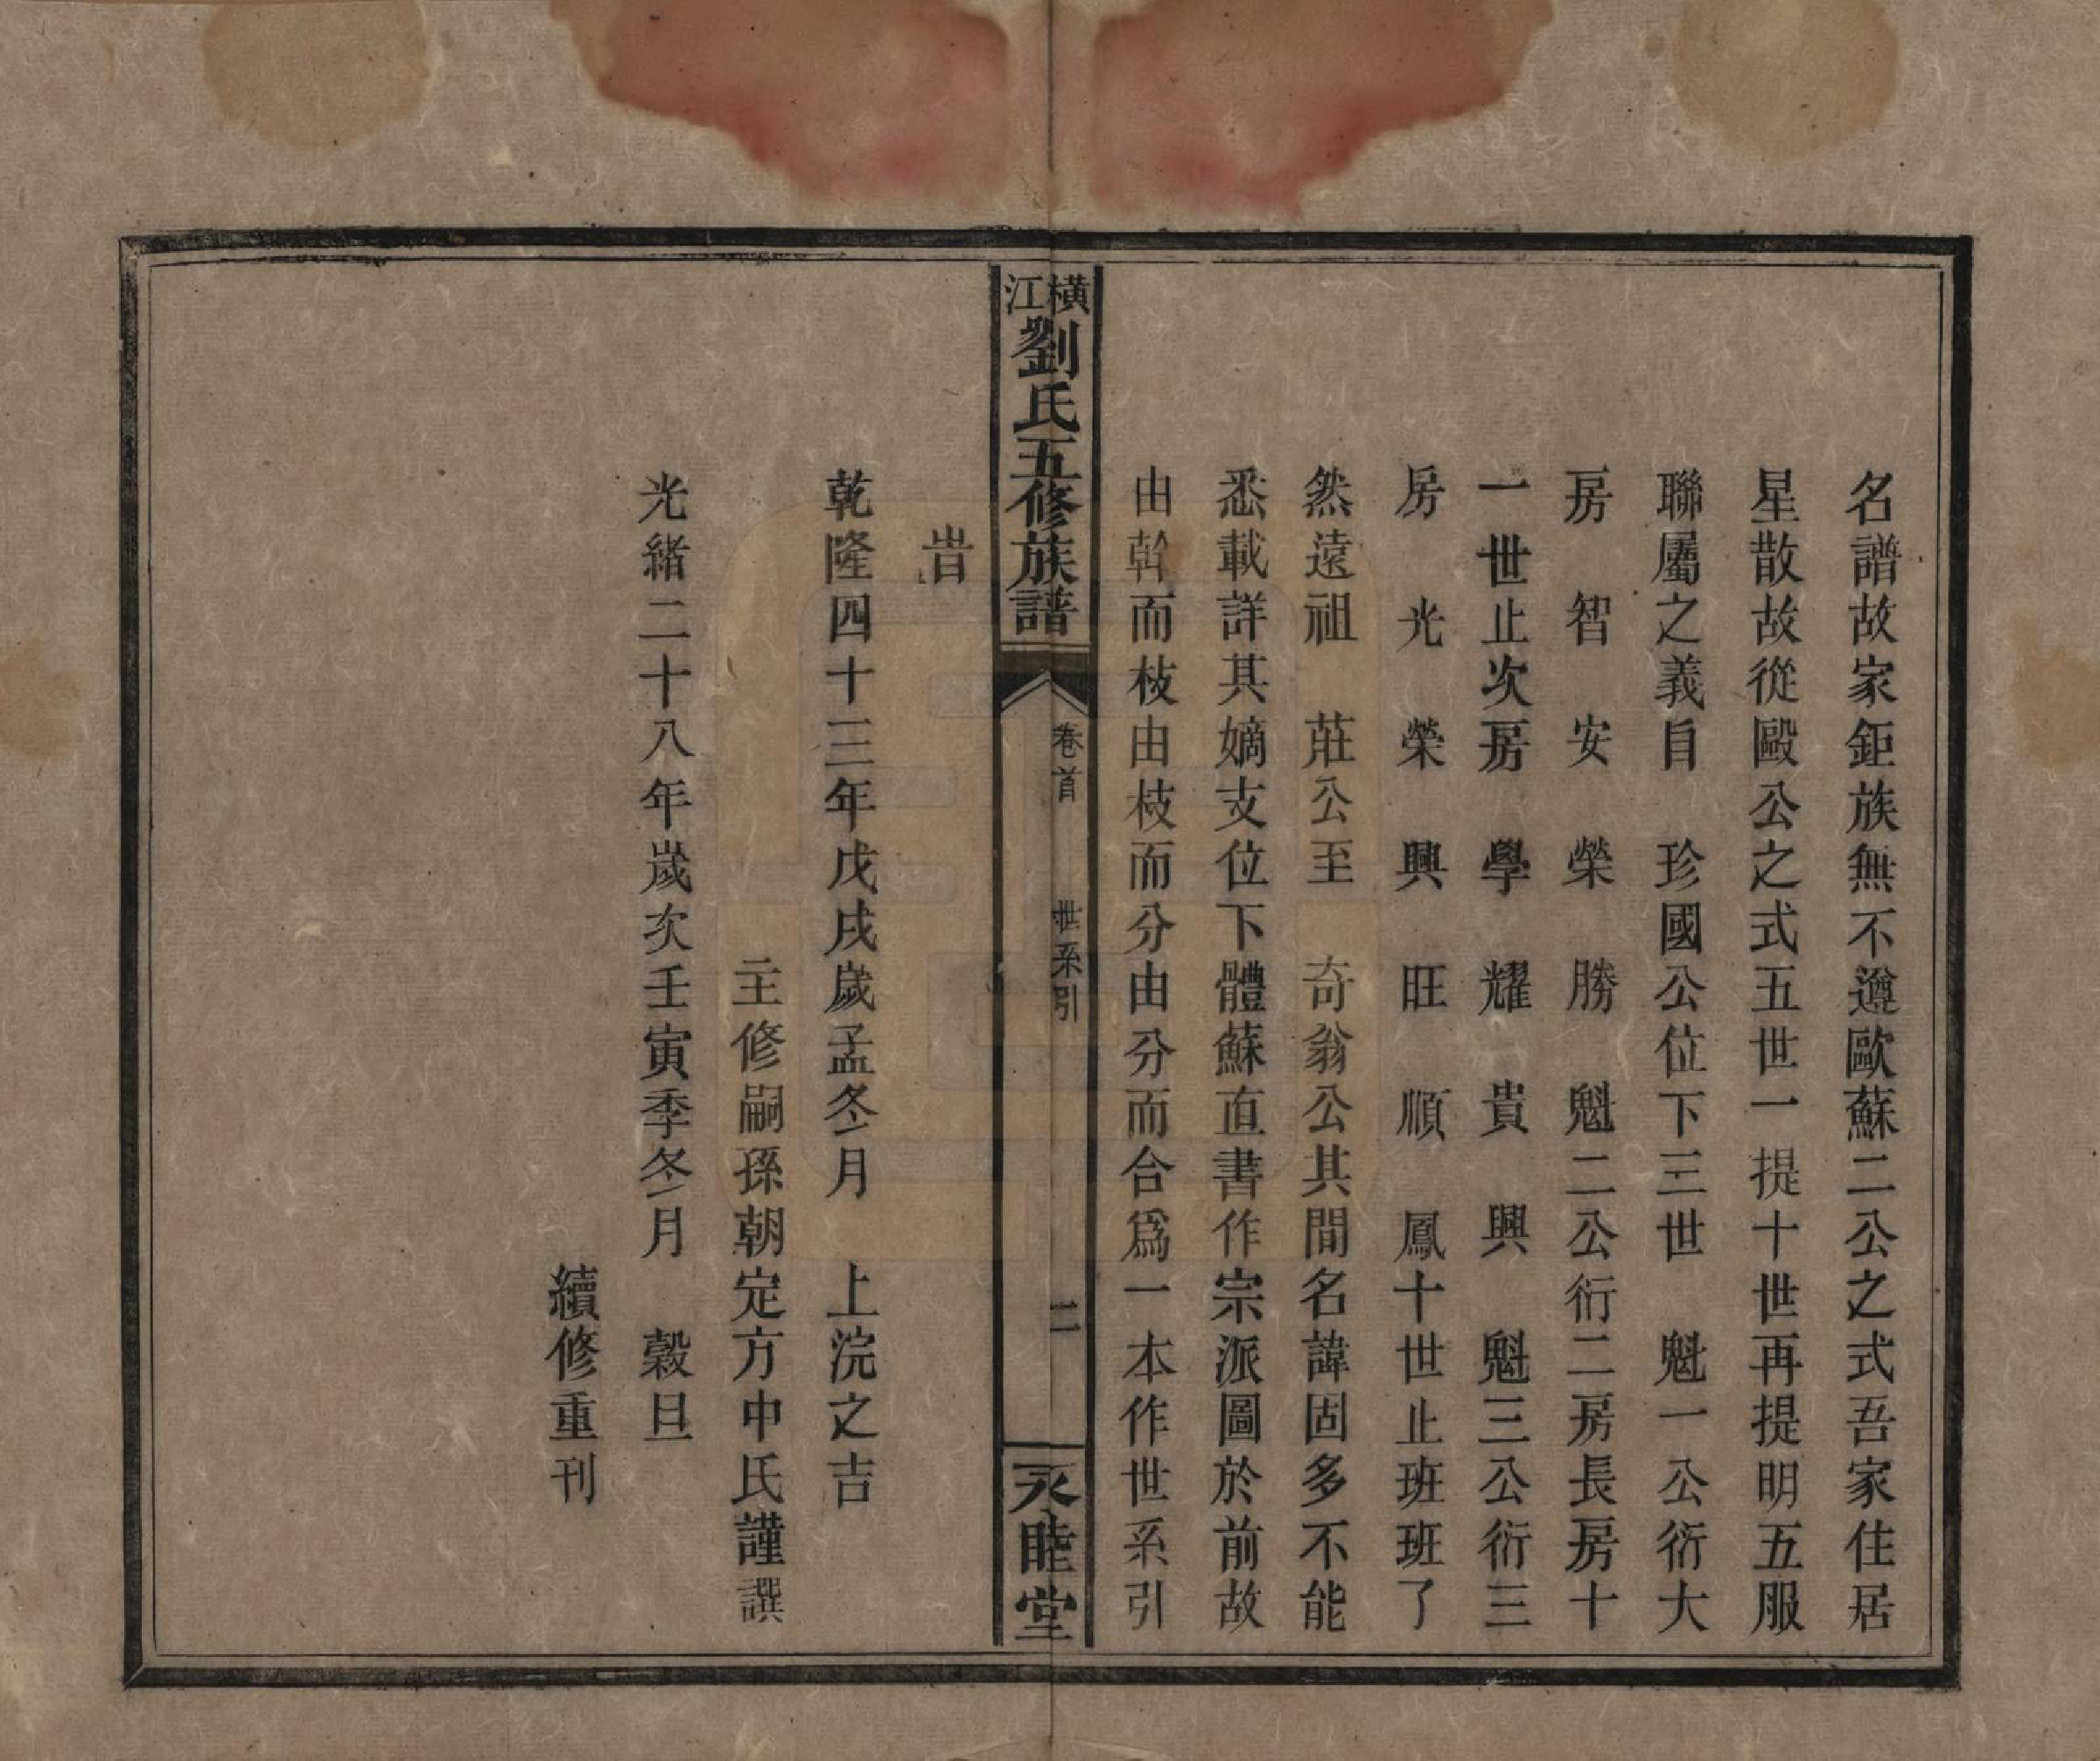 名譜故家鉅族無不遵歐蘇二公之式吾家住居
星散故從歐公之式五世一提十世再提明五服
聯屬之義自　珍國公位下三世　魁一公衍大
房　智　安　榮　勝　魁二公衍二房長房十
一世止次房　學　耀　貴　興　魁三公衍三
房　光　榮　興　旺　順　鳳十世止班班了
然遠祖　莊公至　奇翁公其間名諱固多不能
悉載詳其嫡支位下體蘇直書作宗派圖於前故
由幹而枝由枝而分由分而合爲一本作世系引
橫江劉氏五修族譜　卷首　世系引　二　永睦堂
旹
乾隆四十三年戊戌歲孟冬月　上浣之吉
主修嗣孫朝定方中氏謹譔
光緒二十八年歲次壬寅季冬月　穀旦
續修重刊